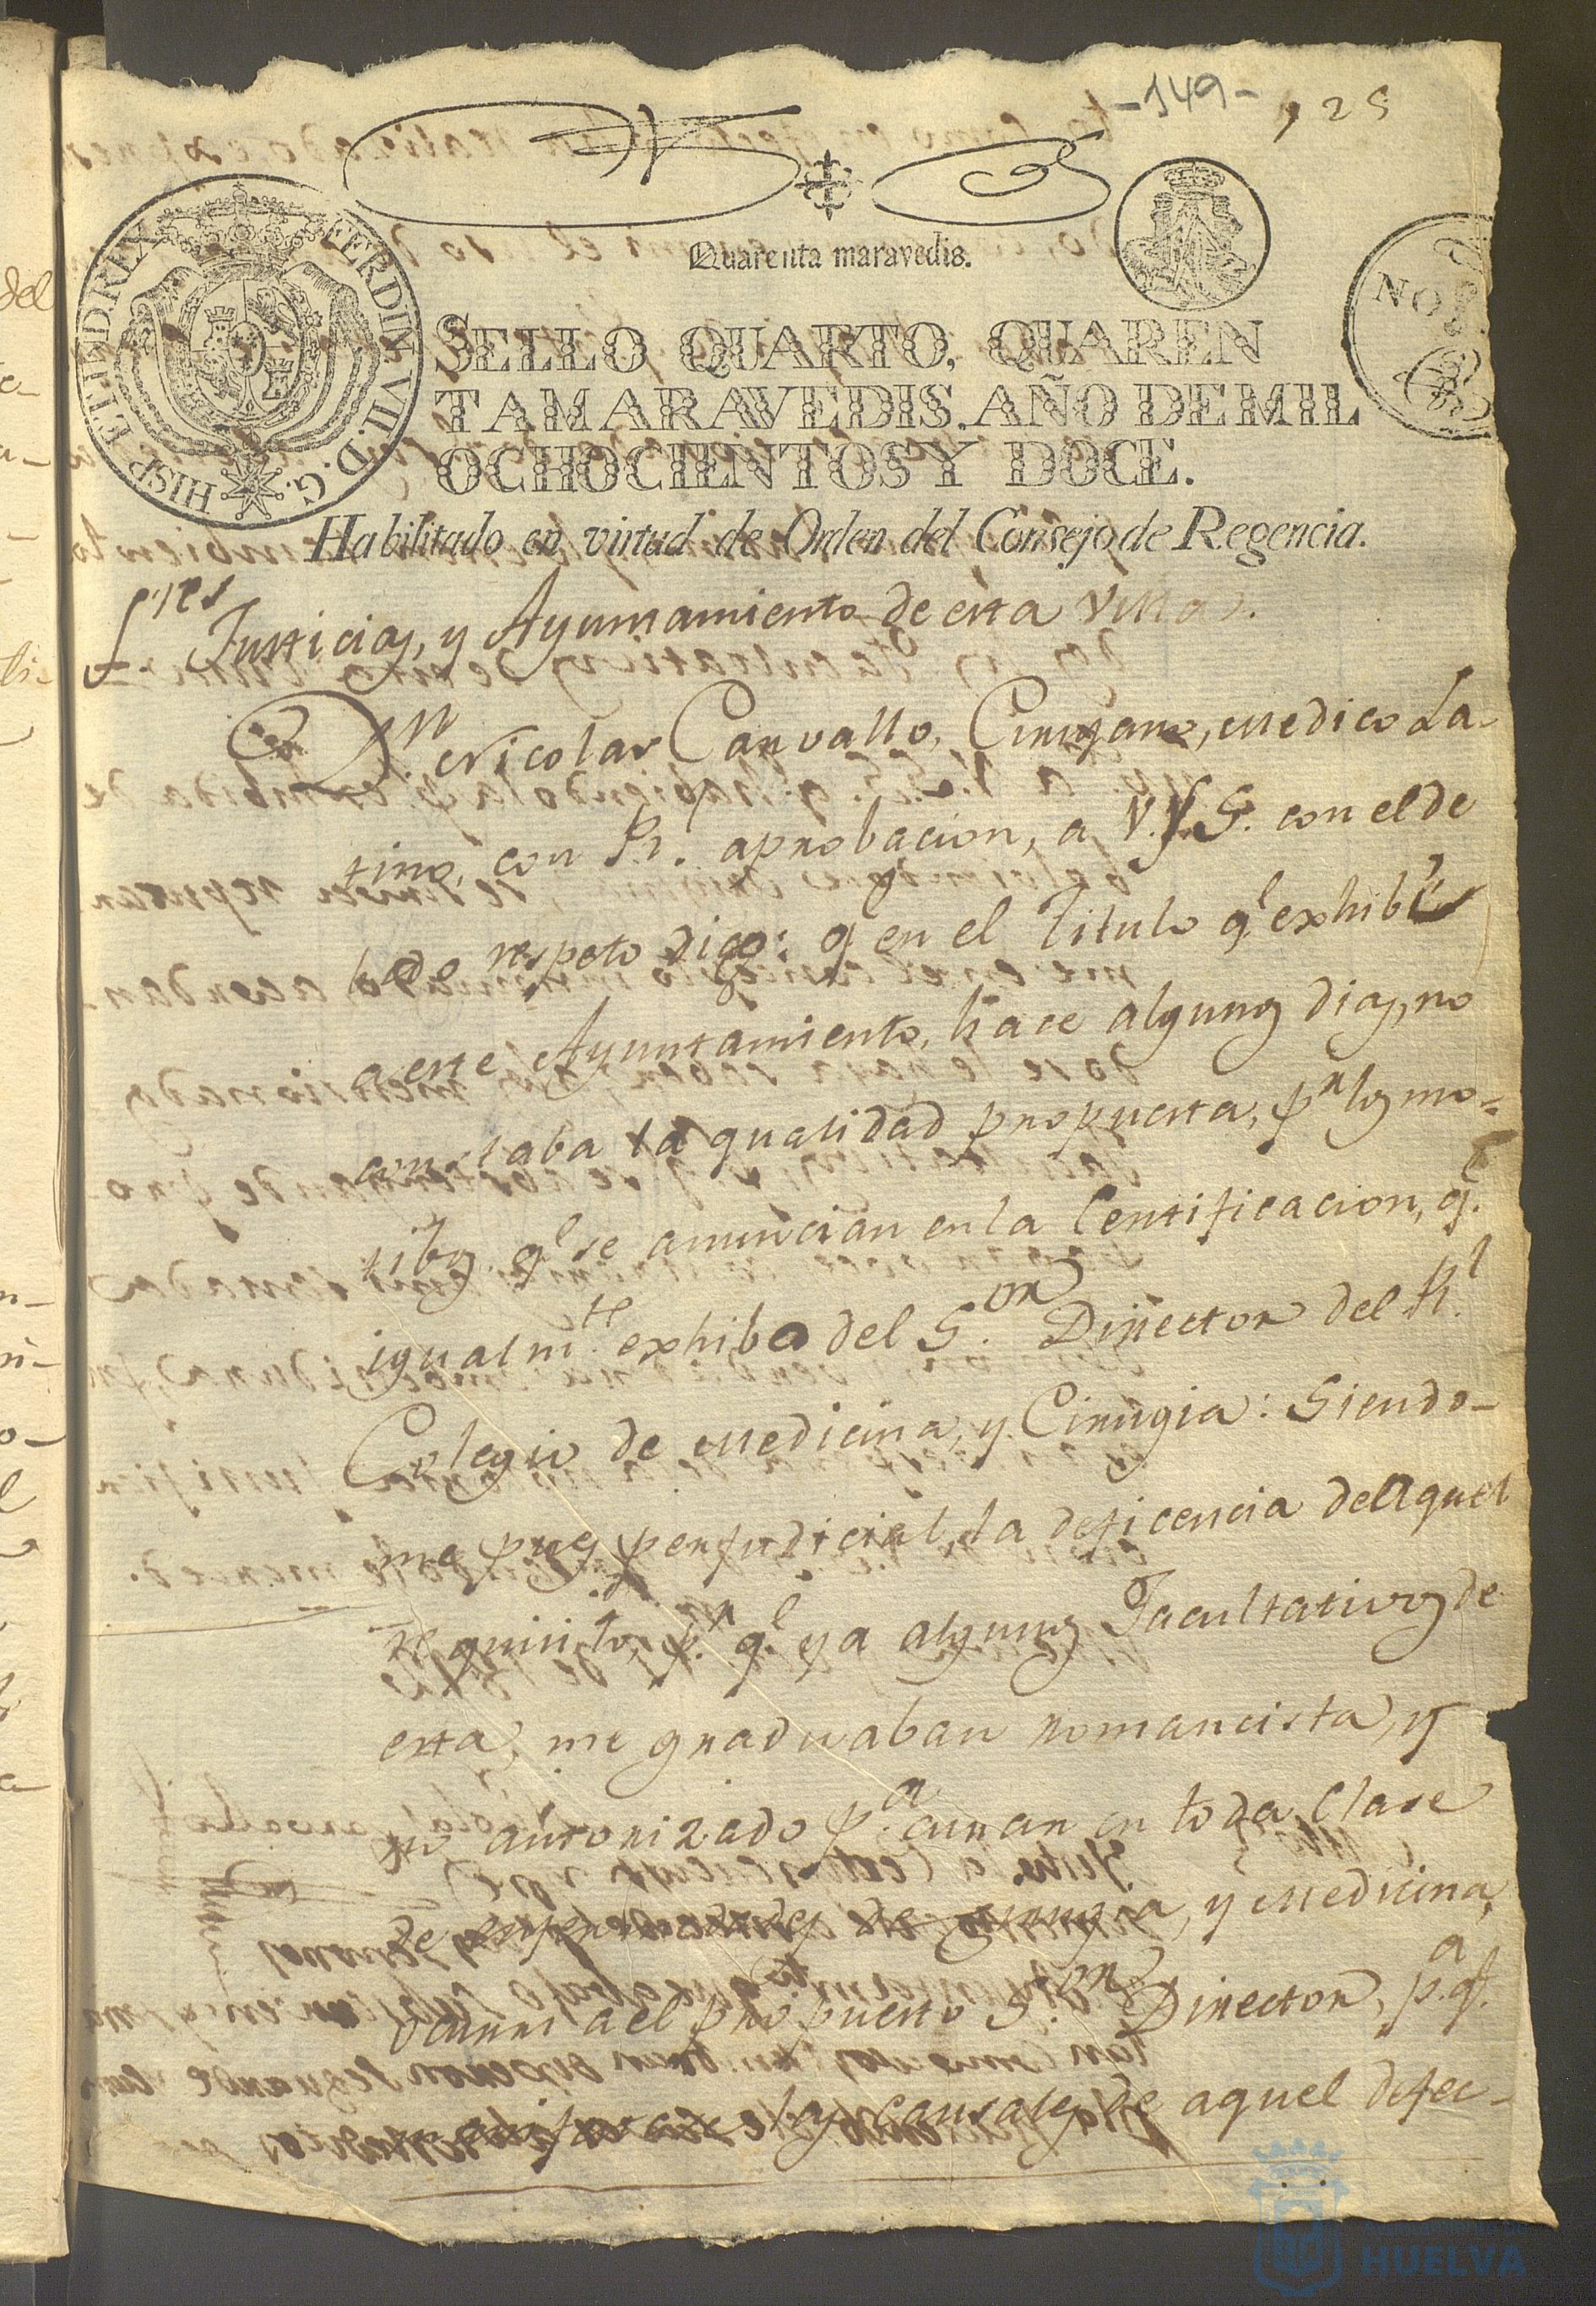 -149- 125
Quarenta maravedis.
HISP. ET IND REX FERDIN VII. D. G.
NO
SELLO QUARTO, QUAREN
TA MARAVEDIS, AÑO DE MIL
OCHOCIENTOS Y DOCE.
Habilitado en virtud de Orden del Consejo de Regencia.
Sres Justicia, y Ayuntamiento de esta Villa.
Dn. Nicolas Carvallo, Cirujano, Medico La-
tino, con Rl. aprobacion, a V.S.S. con el de
bido respeto digo: q en el Titulo qe exhibi
a este Ayuntamiento, hace algunos dias, no
constaba la qualidad propuesta, pr los mo-
tibos qe se anuncian en la Certificacion, qe
igualmte. exhibo del Sor. Director del Rl.
Colegio de Medicina, y Cirugia: Siendo-
me pues perjudicial, la deficencia de aquel
requisito, pr. qe ya algunos Facultativos de
esta, me graduaban romancista, y
no autorizado pa. curar en toda clase
de enfermedades de Cirugia, y Medicina,
ocurri a el propuesto Sor. Director, pa. q.
las causales de aquel defec-
HUELVA